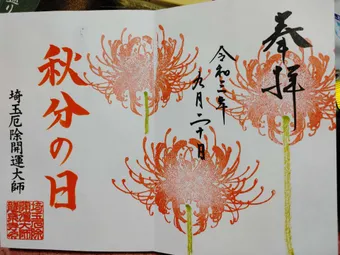 奉拝
令和三年
九月二十日
秋分の日
埼玉厄除開運大師